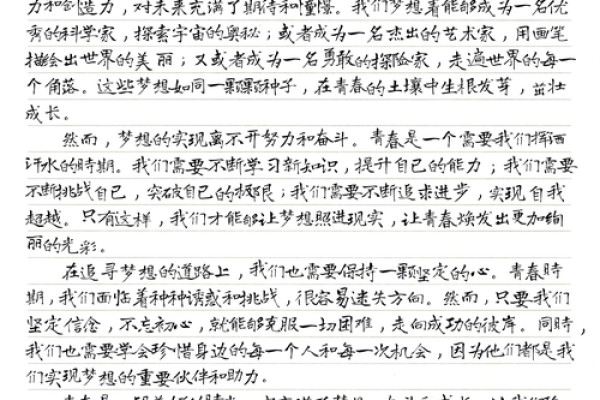 力和创造力，对未来充满了期待和憧憬。我们梦想着能够成为一名优
秀的科学家，探索宇宙的奥秘；或者成为一名杰出的艺术家，用画笔
描绘出世界的美丽；又或者成为一名勇敢的探险家，走遍世界的每一
个角落。这些梦想如同一颗颗种子，在青春的土壤中生根发芽，茁壮
成长。
然而，梦想的实现离不开努力和奋斗。青春是一个需要我们挥洒
汗水的时期。我们需要不断学习新知识，提升自己的能力；我们需要
不断挑战自己，突破自己的极限；我们需要不断追求进步，实现自我
超越。只有这样，我们才能够让梦想照进现实，让青春焕发出更加绚
丽的光彩。
在追寻梦想的道路上，我们也需要保持一颗坚定的心。青春时
期，我们面临着种种诱惑和挑战，很容易迷失方向。然而，只要我们
坚定信念，不忘初心，就能够克服一切困难，走向成功的彼岸。同时，
我们也需要学会珍惜身边的每一个人和每一次机会，因为他们都是我
们实现梦想的重要伙伴和助力。